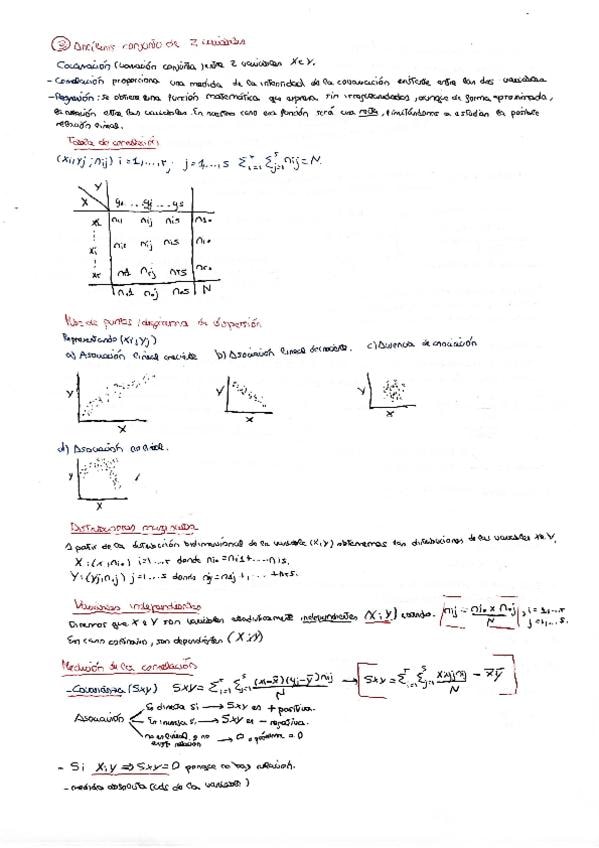 ③ Análisis conjunto de 2 variables
Covariación (variación conjunta) entre 2 variables X e Y.
- Correlación proporciona una medida de la intensidad de la covariación existente entre las dos variables
- Regresión: Se obtiene una función matemática que expresa, sin irregularidades, aunque de forma aproximada,
la relación entre las variables. En nuestro caso esa función será una recta, limitándonos a estudiar la posible
relación lineal.
Tabla de correlación
(xi, yj; nij) i=1,...,r; j=1,...,s Σʳᵢ₌₁ Σˢⱼ₌₁ nij = N
Y
X y1 ... yj ... ys
x1 ni1 nij nis n1•
xi ni1 nij nis ni•
xr nr1 nrj nrs nr•
n•1 n•j n•s N
Nube de puntos / diagrama de dispersión
Representando (xi, yj)
a) Asociación lineal creciente b) Asociación lineal decreciente. c) Ausencia de asociación
Y X Y X Y X
d) Asociación no lineal.
Y X
Distribuciones marginales
A partir de la distribución bidimensional de la variable (X,Y) obtenemos las distribuciones de las variables X e Y.
X: (xi, ni•) i=1...r donde ni• = ni1+...nis.
Y: (yj, n•j) j=1...s donde n•j = n1j + ... + nrj.
Variables independientes
Diremos que X e Y son variables estadísticamente independientes (X;Y) cuando. [nij = ni• x n•j / N], i=1,...r j=1,...s.
En caso contrario, son dependientes (X;Y)
Medición de la correlación
- Covarianza (Sxy) Sxy = Σʳᵢ₌₁ Σˢⱼ₌₁ (xi-x̄)(yj-ȳ)nij / N → [Sxy = Σʳᵢ₌₁ Σˢⱼ₌₁ xiyjnij / N - x̄ȳ]
Asociación
Es directa si → Sxy es + positiva.
Es inversa si → Sxy es - negativa.
no es lineal o no → 0 o próximo a 0
existe relación
- Si X;Y ⇒ Sxy=0 porque no hay relación.
- medida absoluta (uds de la variable)